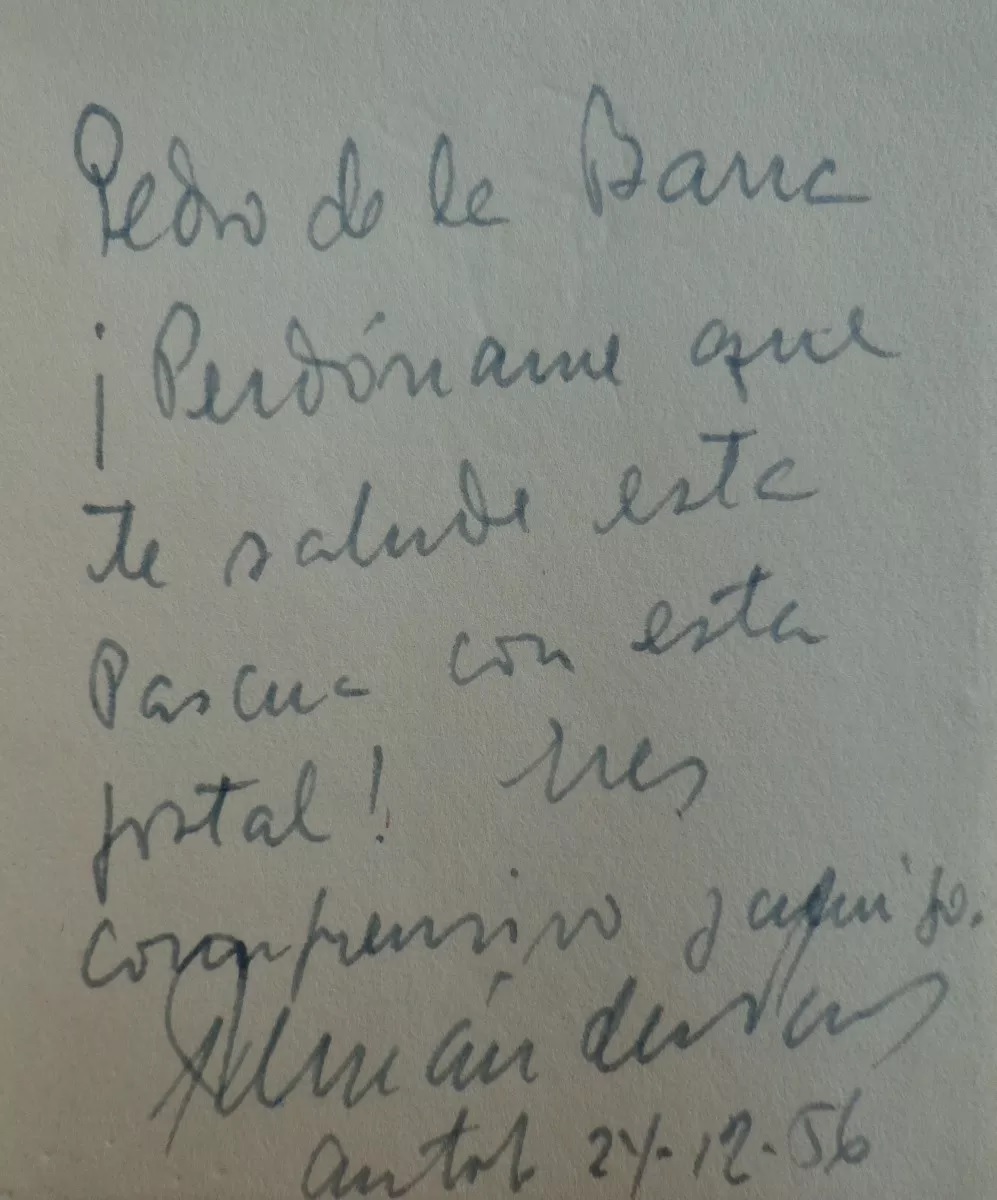 Pedro de la Barra
¡Perdóname que
te salude esta
Pascua con esta
postal! eres
comprensivo y amigo.
Hernán del Solar
Antof 24-12-56